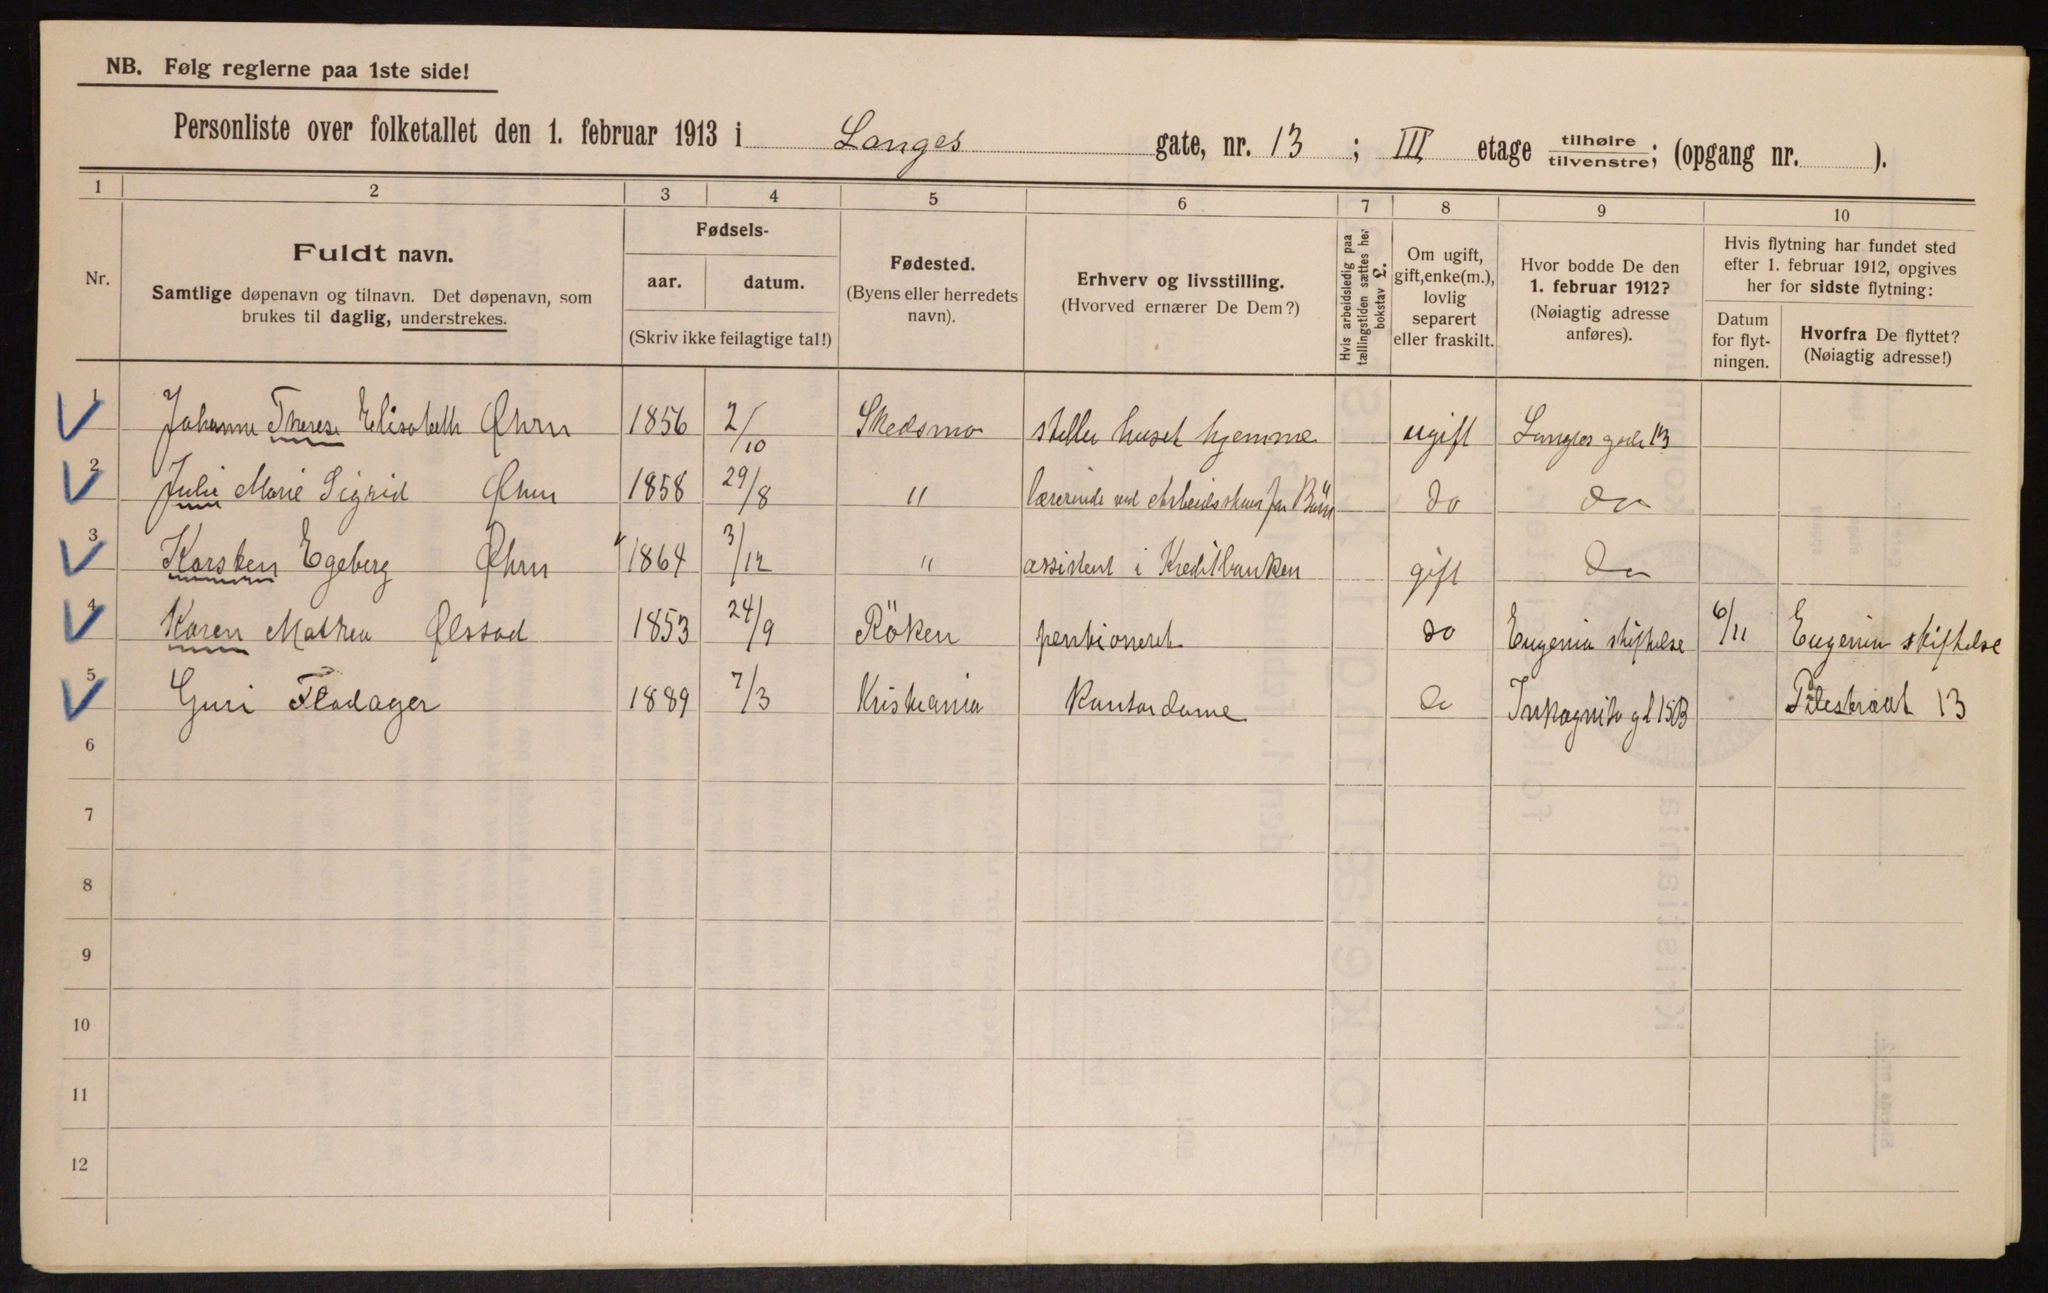 NB. Følg reglerne paa 1ste side!
Personliste over folketallet den 1. februar 1913 i Langes gate, nr. 13 ; III etage tilhøire / tilvenstre; (opgang nr. ).
1 2 3 4 5 6 7 8 9 10
Nr.
Fuldt navn.
Samtlige døpenavn og tilnavn. Det døpenavn, som
brukes til daglig, understrekes.
Fødsels-
aar. datum.
(Skriv ikke feilagtige tal!)
Fødested.
(Byens eller herredets
navn).
Erhverv og livsstilling.
(Hvorved ernærer De Dem?)
Hvis arbeidsledig paa
tællingstiden sættes her
bokstav L.
Om ugift,
gift, enke(m.),
lovlig
separert
eller fraskilt.
Hvor bodde De den
1. februar 1912?
(Nøiagtig adresse
anføres).
Hvis flytning har fundet sted
efter 1. februar 1912, opgives
her for sidste flytning:
Datum
for flyt-
ningen.
Hvorfra De flyttet?
(Nøiagtig adresse!)
1 Johanne Therese Elisabeth Øhrn 1856 2/10 Skedsmo steller huset hjemme ugift Langes gade 13
2 Julie Marie Sigrid Øhrn 1858 29/8 " lærerinde ved Arbeidsskan for Børn do do
3 Karsten Egeberg Øhrn 1864 3/12 " assistent i Kreditbanken gift do
4 Karen Mathea Ølstad 1853 24/9 Röken pentioneret do Eugenia stiftelse 6/11 Eugenia stiftelse
5 Guri Flodager 1889 7/3 Kristiania Kontordame do Inkognito gd 15B Pilestrædt 13
6
7
8
9
10
11
12